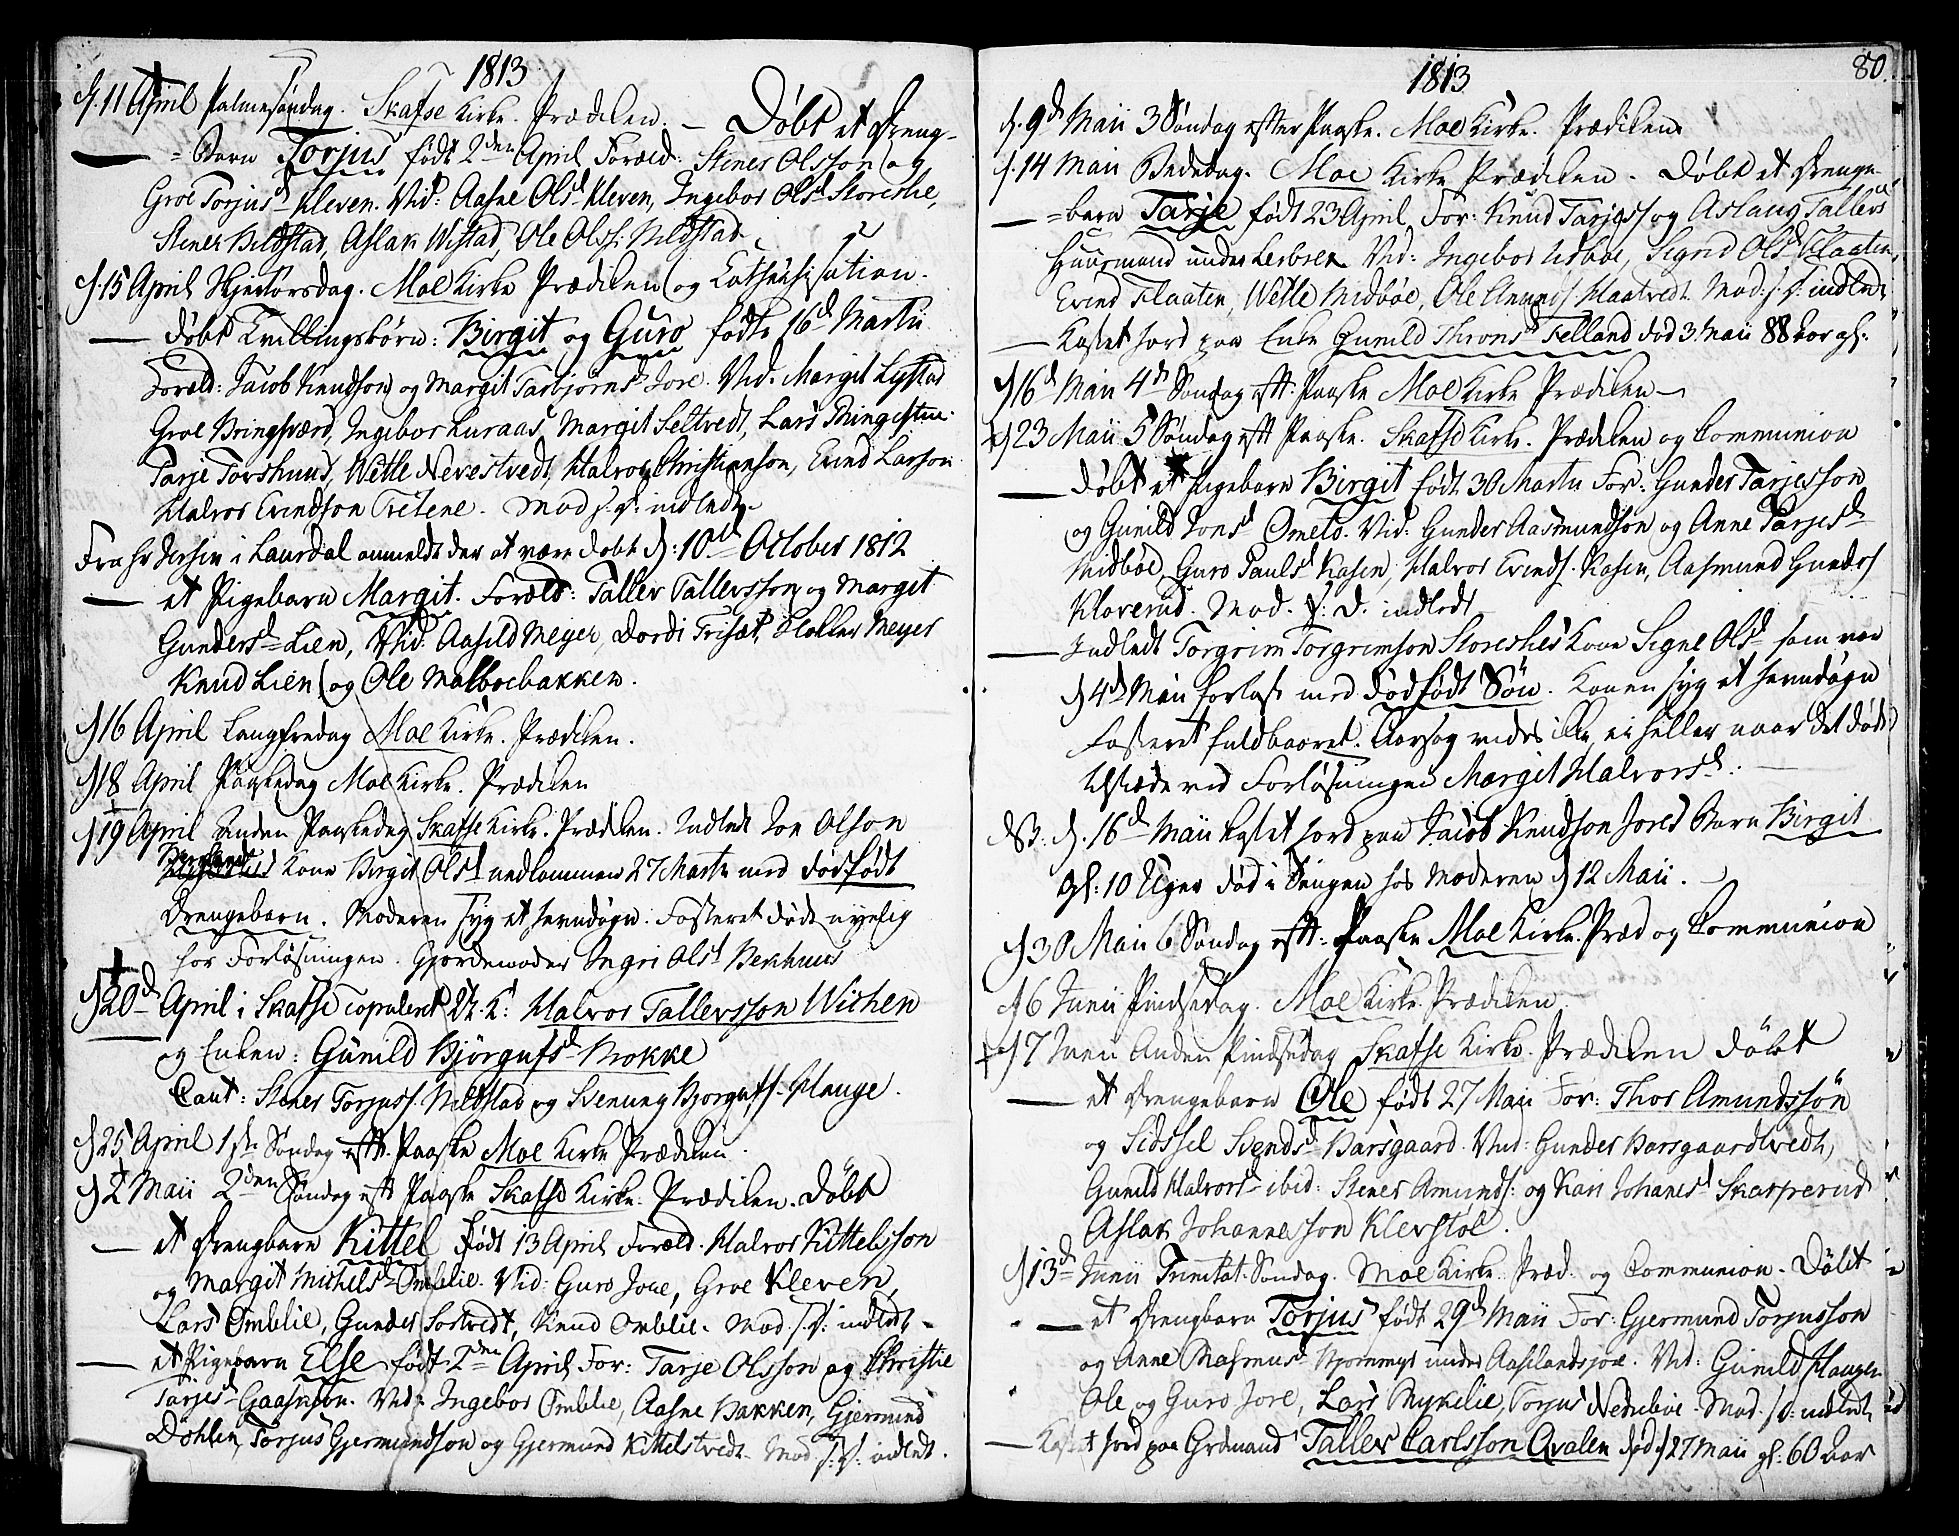 1813
d. 11 April Palmesøndag. Skafse Kirke. Prædiken. — Døbt et Drenge-
= Barn Torjus født 2den April Foræld: Stener Olsson og
Groe Torjusd Kleven. Vid: Aasne Olsd Kleven, Ingebor Olsd Storeslie,
Stener Nildstad, Aslak Wistad, Ole Olss: Nildstad.
d. 15 April Skjertorsdag. Moe Kirke Prædiken og Cathechisation.
— Døbt Tvillingebørn: Birgit og Guro fødte 16d Martii
Foræld: Jacob Knudson og Margit Tarbjørnsd Jore. Vid. Margit Lystad
Groe Bringsværd, Ingebor Luraas, Margit Seltvedt, Lars
Tarje Torshuus, Wetle Nevestvedt, Halvor Christienson, Evind Larson
Halvor Evindson Tretene. Mod. s. D: indledt.
Fra Hr in Laurdal anmeldt der at være døbt d: 10d October 1812
— et Pigebarn Margit. Foræld: Taller Tallersson og Margit
Gundersd Lien, Vid: Aasild Meyer, Dordi Trisæt, Meyer
Knud Lien og Ole Malboebakken.
d 16 April Langfredag Moe Kirke. Prædiken.
d 18 April Paaskedag Moe Kirke. Prædiken
d 19 April Anden Paaskedag Skafse Kirke. Prædiken. Indledt Jon Olson
Kone Birgit Olsd nedkommen 27 Martii med dødfødt
Drengebarn. Moderen syg et Fosteret døde nyelig
før Forløsningen. Gjordemoder Ingri Olsd Bekhuus
d 20d April i Skafse copuleret U. K: Halvor Tallersson Wishen
og Enken: Gunild Bjørgufsd Mokke
Caut: Stener Torjuss. Nildstad og Bjørgufs. Hauge.
d 25 April 1ste Søndag eft. Paaske Moe Kirke Prædiken.
d 2 Maii 2den Søndag eft Paaske Skafse Kirke. Prædiken. Døbt
— et Drengbarn Kittel Født 13 April Foræld. Halvor Kittelsson
og Margit Michelsd Omblie. Vid: Guro Joue, Groe Kleven,
Lars Omblie, Gunder Sostvedt, Knud Omblie. Mod. s. D: indledt.
— et Pigebarn Else født 2den April, For: Tarje Olsson og Christie
Tarjesd Gaaskjøn. Vid: Ingebor Omblie, Aasne Bakken, Gjermund
Døhlen, Torjus Gjermundson og Gjermund Kittelstvedt. Mod. s: D: indledt.
1813
80
d. 9d Maii 3 Søndag efter Paaske. Moe Kirke. Prædiken
d. 14 Maii Bededag. Moe Kirke Prædiken. Døbt et Drenge-
— =barn Tarje født 23 April, For: Knud Tarjess og Aslaug Tallersd
Huusmand under Vid: Ingebor Midbøe, Signe Olsd Flaaten,
Evind Flaaten, Wetle Midbøe, Ole Amunds. Haatvedt. Mod: s: D: indledt
— Kastet Jord paa Enke Gunild Thronsd Felland død 3 Maii 88 Aar gl:
d 16d Maii 4de Søndag eft. Paaske Moe Kirke Prædiken —
d 23 Maii 5 Søndag eft Paaske. Skafse Kirke. Prædiken og Communion
— Døbt et Pigebarn Birgit født 30 Martii For: Gunder Tarjesson
og Gunild Jonsd Ometo. Vid: Gunder Aasmundson og Anne Tarjesd
Midbøe, Guro Paulsd Kasen, Halvor Evinds. Kasen, Aasmund Gunders
Kloverud. Mod. s: D. indledt
— Indledt Torgrim Torgrimson Storeslies Kone Signe Olsd som var
d 4d Maii forløst med dødfødt Søn. Konen syg et
Fosteret fuldbaaret. Aarsag vides ikke, ei heller naar det døde.
tilstæde ved Forløsningen Margit Halvorsd.
NB: d. 16d Maii kastet Jord paa Jacob Knudson Jores Barn Birgit
gl: 10 Uger død i Sengen hos Moderen d 12 Maii.
d 30 Maii 6 Søndag eft: Paaske Moe Kirke. Præd og Communion
d 6 Junii Pindsedag. Moe Kirke Prædiken.
d 7 Junii Anden Pindsedag Skafse Kirke. Prædiken Døbt
— et Drengebarn Ole født 27 Maii For: Thor Amundssøn
og Sidssel Svendsd Harsgaard. Vid: Gunder Harsgaardtvedt,
Gunild Halvorsd ibid: Stener Amunds: og Kari Johannesd Skarperud
Aslak Johannesson Klevstøl.
d 13d Junii Trinitat. Søndag. Moe Kirke. Præd. og Communion. Døbt
— et Drengbarn Torjus født 29d Maii For: Gjermund Torjusson
og Anne Rasmusd under Aaslandsjore. Vid: Gunild Haugen
Ole og Guro Jore, Lars Mykelie, Torjus Nedrebøe. Mod. s: D: indledt
— Kastet Jord paa Grdmand Taller Carlsson Qvalen død d 27 Maii gl: 60 Aar